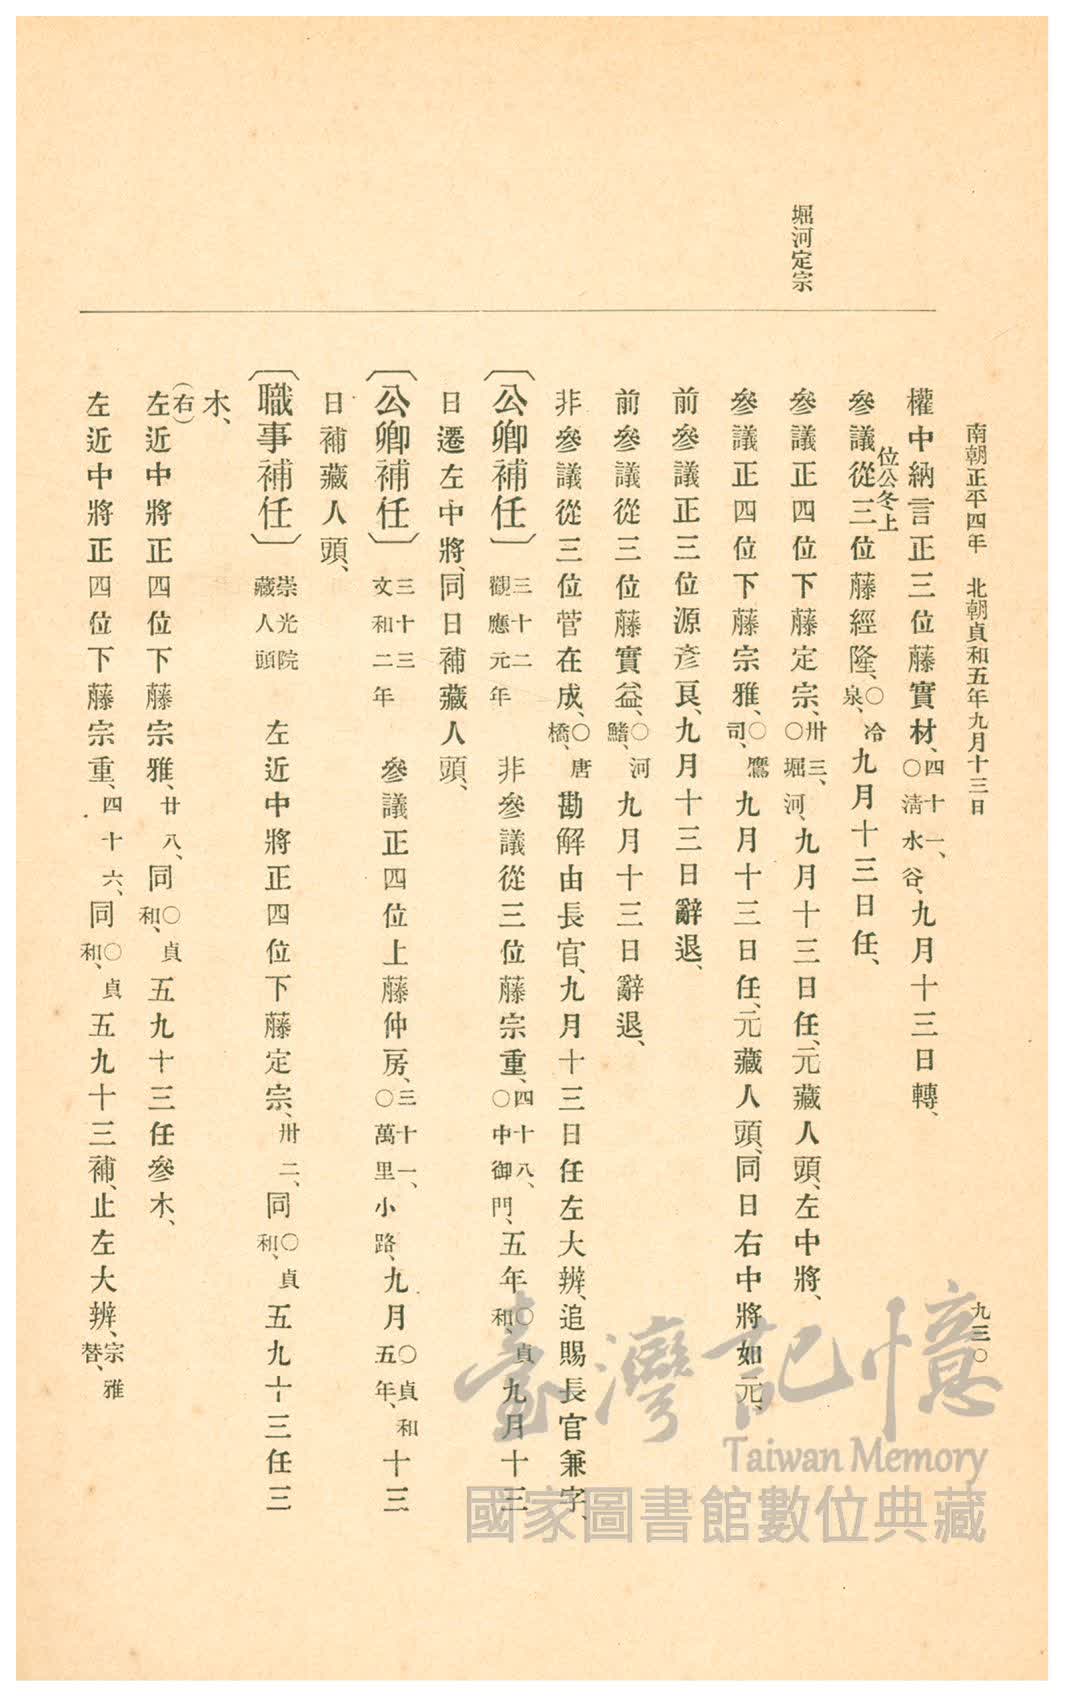 南朝正平四年　北朝貞和五年九月十三日
九三〇
堀河定宗
權中納言正三位藤實材、四十一、〇淸水谷、九月十三日轉、
位公冬上
參議從三位藤經隆、〇冷泉、九月十三日任、
參議正四位下藤定宗、卅三、〇堀河、九月十三日任、元藏人頭、左中將、
參議正四位下藤宗雅、〇鷹司、九月十三日任、元藏人頭、同日右中將如元、
前參議正三位源彥良、九月十三日辭退、
前參議從三位藤實益、〇河鰭、九月十三日辭退、
非參議從三位菅在成、〇唐橋、勘解由長官、九月十三日任左大辨、追賜長官兼字、
〔公卿補任〕三十二觀應元年　非參議從三位藤宗重、四十八、〇中御門、五年〇貞和、九月十三
日遷左中將、同日補藏人頭、
〔公卿補任〕三十三文和二年　參議正四位上藤仲房、三十一、〇萬里小路、九月〇貞和五年、十三
日補藏人頭、
〔職事補任〕崇光院藏人頭　左近中將正四位下藤定宗、卅二、同〇貞和、五九十三任三
木、
左（右）近中將正四位下藤宗雅、廿八、同〇貞和、五九十三任參木、
左近中將正四位下藤宗重、四十六、同〇貞和、五九十三補、止左大辨、宗雅替、
臺灣記憶
Taiwan Memory
國家圖書館數位典藏